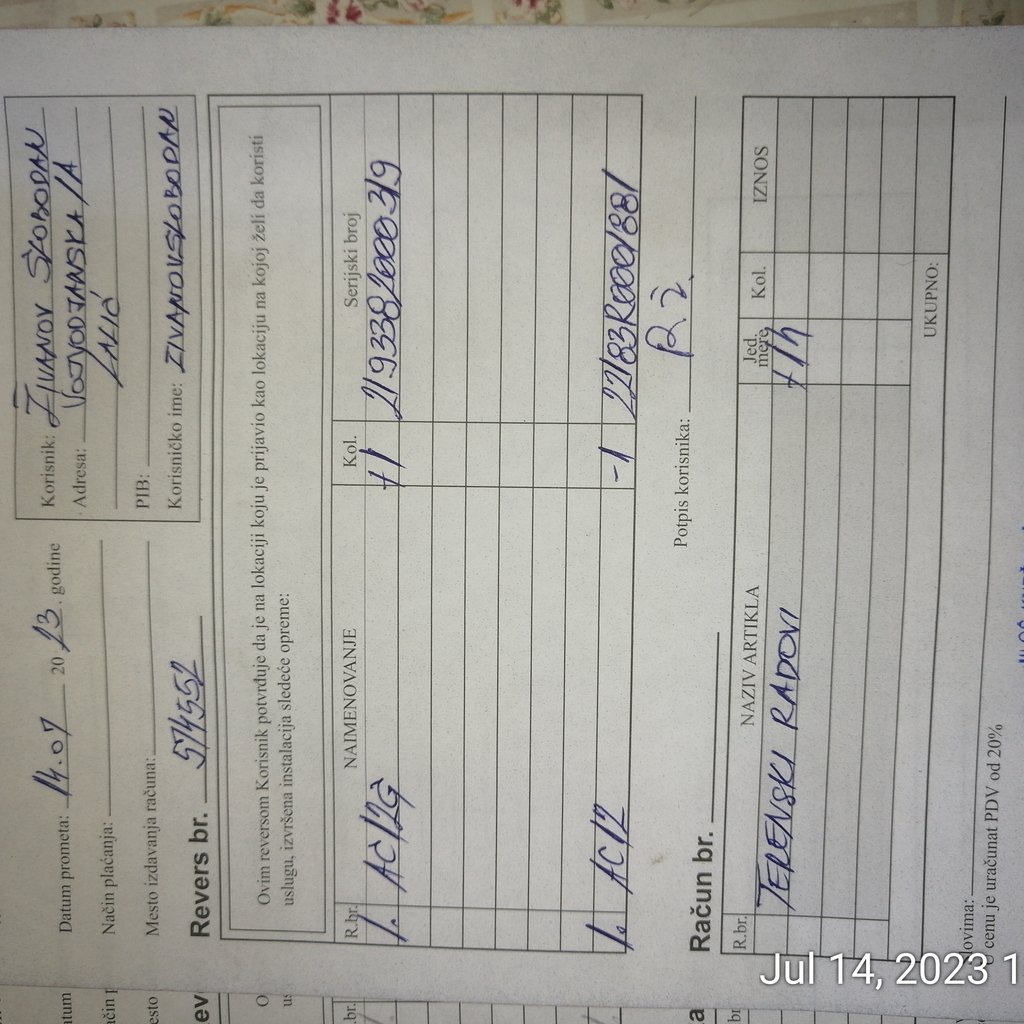 Datum prometa: 14.07 2023. godine
Način plaćanja:
Mesto izdavanja računa:
Korisnik: ŽIVANOV SLOBODAN
Adresa: VOJVODJANSKA 1A
LALIĆ
PIB:
Korisničko ime: ZIVANOVSLOBODAN
Revers br. 574552
Ovim reversom Korisnik potvrđuje da je na lokaciji koju je prijavio kao lokaciju na kojoj želi da koristi
uslugu, izvršena instalacija sledeće opreme:
R.br. NAIMENOVANJE Kol. Serijski broj
1. AC12G +1 219338
1. AC12 -1 22183R0001881
Potpis korisnika:
Račun br.
R.br. NAZIV ARTIKLA Jed. mere Kol. IZNOS
TERENSKI RADOVI +1h
UKUPNO:
Slovima:
U cenu je uračunat PDV od 20%
Jul 14, 2023 1